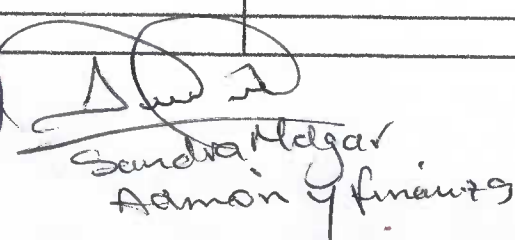 Sandra Melgar
Admón y finanzas